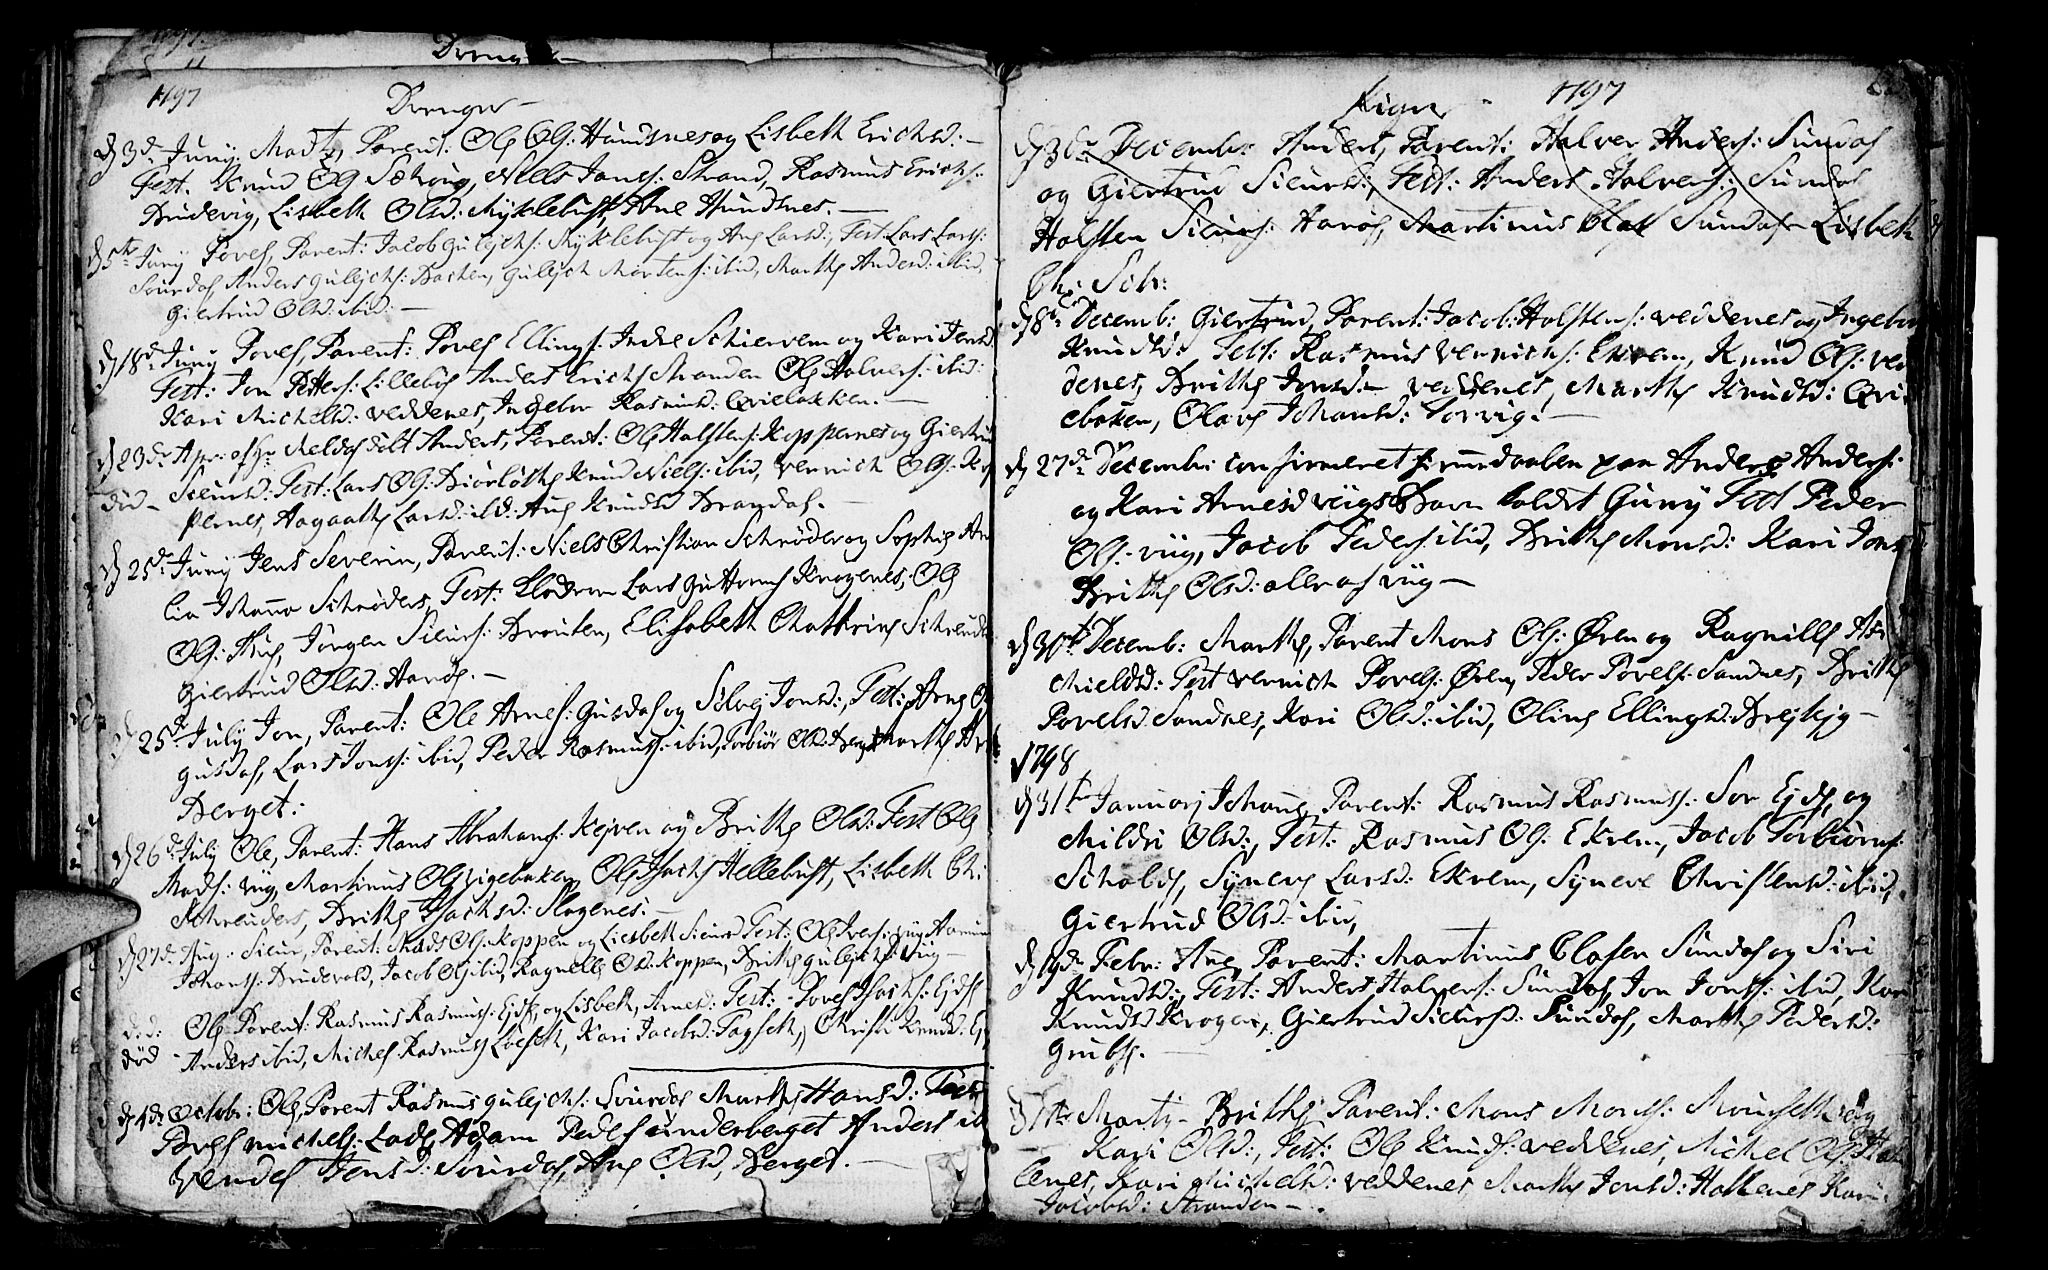 1797
Drenge
1797 Drenger
d 3d Junij Madtz, Parent: Ole Ols: Hundsnes og Lisbeth Erichsd:
Test. Knud Ols Sætroug, Niels Jans: Strand, Rasmus Erichs:
Brudevig, Lisbeth Olsd: Myklebust, Ane Hundsnes.
d 5te Junij Povel, Parent: Jacob Gulichs: Myklebust og Ane Larsd:, Test: Lars Lars:
Sourdal, Anders Gulichs: Backen, Gulich Mortens: ibid, Marthe Andersd: ibid,
Giertrud Olsd: ibid:
d 18d Junij Povel, Parent: Povel Ellings: Indre Schierven og Kari Jensd:
Test: Jon Petters: Lillebø Anders Erichs Stranden Ole Halvers: ibid:
Kari Michelsd: Veddenes, Ingebor Rasmusd: Qviebakken.
d 23de Apr: af Hr Meldal døbt Anders, Parent: Ole Halstens: Koppernes og Giertrud
Siursd: Test: Lars Ols: Biørløthe Knud Niels: ibid, Verrich Ols: Kop
pernes, Aagaathe Larsd: ibid: Ane Knudsd Brandal.
d 25de Junij Jens Severin, Parent: Niels Christian Schrøder og Sophie Am
lia Johanna Schrøders, Test: Klokkern Lars Guttorms Kragenes, Ole
Ols: Aue, Jørgen Siurs: Brouten, Elisabeth Chathrine Schreuder
Giertrud Olsd: Harøe.
25de July Jon, Parent: Ole Arnes: Gusdal og Silvej Jonsd:, Test: Arne O
Gusdal, Lars Jons: ibid, Peder Rasmus: ibid, Torbiør Olsd: Berget Marthe Ar
Berget:
d 26de July Ole, Parent: Hans Abrahams: Kejpen og Brithe Olsd: Test Ole
Mads: Viig, Martinus Ols Vigebaken Ole Isachs Hellebust, Lisbeth Chi
Schreuders, Brithe Isachsd: Slogenes.
d 27de Aug: Siur, Parent: Mads Ols: Koppen og Liesbeth Siursd Test: Ole Ivers: Viig
Johans: Brudevold, Jacob Ols ibid, Ragnelle Olsd: Koppen, Brithe Gulichsd: Viig
d: d: Ole Parent: Rasmus Rasmus: Ejde, og Lisbeth Arnesd: Test: Povel Isachs: Ejde
død Anders ibid, Michel Rasmus Løeseth, Kari Jacobsd: Fagseth, Christi Knudsd: Ej
d 4de Octobr: Ole, Parent Rasmus Gulichs: Sourdal Marthe Hansd: Test
Povel Michels: Lade Adam Peders underberget Anders ib
Vendel Jensd: Sourdal, Ane Olsd, Berget.
Piger 1797
d 3de Decembr: Anders, Parent: Halver Anders: Sundal
og Giertrud Siursd:, Test: Anders Halvers: Sundal
Halsten Siurs: Harøe, Martinus Olas Sundal Lisbeth
Chr: Schr:
d 8de Decemb: Giertrud, Parent: Jacob: Halstens: Veddenes og Ingebor
Knudsd:, Test: Rasmus Verrichs: Ekrem, Knud Ols: Ved
denes, Brithe Jonsd: Veddenes, Marthe Knudsd: Qvi
ebaken, Olave Johansd: Torvig.
d 27de Decembr: confirmeret hiemedaaben paa Anders Anders:
og Kari Arnesd Viigs Barn kaldet Guny Test Peder
Ols: Viig, Jacob Peders: ibid, Brithe Monsd: Kari Jons
Brithe Olsd: alle af Viig
d 30te Decemb: Marthe, Parent Mons Ols: Øren og Ragnille As
chieldsd: Test Verrich Povels: Øren, Peder Povels: Sandnes, Brithe
Povelsd: Sandnes, Kari Olsd: ibid, Oline Ellingsd: Brejteje
1798
d 31te Januarj Johane, Parent: Rasmus Rasmus: Sør Ejde, og
Mildri Olsd:, Test: Rasmus Ols: Ekrem, Jacob Torbiørns:
Scholde, Syneve Larsd: Ekrem, Syneve Christensd: ibid,
Giertrud Olsd: ibid,
Febr: Ane Parent: Martinus Olasen Sundal og Siri
Knudsd:, Test: Anders Halvers: Sundal, Jon Jons: ibid, Kari
Knudsd Krogen, Giertrud Siursd: Sundal, Marthe Pedersd:
Grubse.
d 1te Martj Brithe Parent: Mons Mons: Mouseth og
Kari Olsd:, Test: Ole Knuds: Veddenes, Michel Ols Hal
lenes, Kari Michelsd: Veddenes Marthe Jonsd: Hallenes Kari
Jacobsd: Stranden